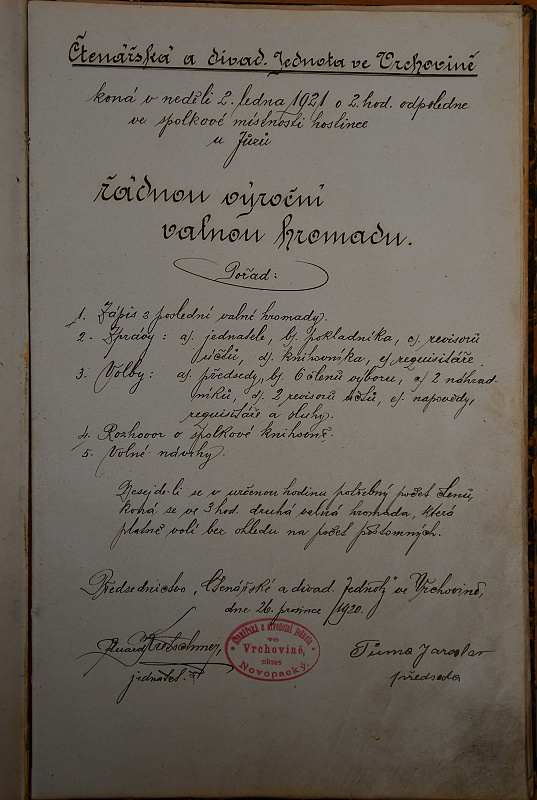 Čtenářská a divad. Jednota ve Vrchovině
koná v neděli 2. ledna 1921 o 2. hod. odpoledne
ve spolkové místnosti hostince
u Jůzů
řádnou výroční
valnou hromadu.
Pořad:
1. Zápis z poslední valné hromady.
2. Zprávy: a). jednatele, b). pokladníka, c). revisorů
účtů, d). knihovníka, e). requisitáře.
3. Volby: a). předsedy, b). 6 členů výboru, c). 2 náhrad-
níků, d). 2 revisorů účtů, e). napovědy,
requisitáře a sluhy.
4. Rozhovor o spolkové knihovně.
5. Volné návrhy.
Nesejde-li se v určenou hodinu potřebný počet členů,
koná se ve 3 hod. druhá valná hromada, která
platně volí bez ohledu na počet přítomných.
Předsednictvo „Čtenářské a divad. Jednoty" ve Vrchovině,
dne 26. prosince 1920.
Eduard Kretschmer,
jednatel.
Čtenářská a divadelní jednota
ve
Vrchovině,
okres
Novopacký.
Tůma Jaroslav
předseda